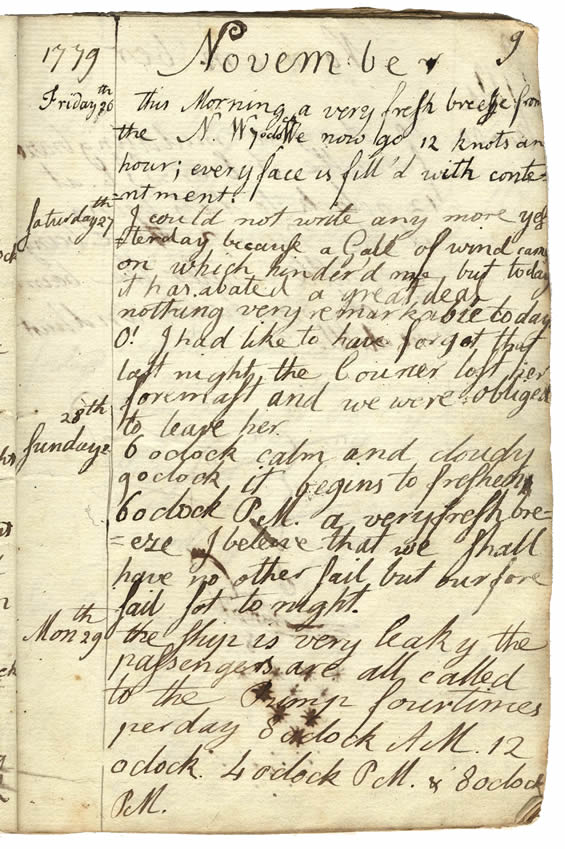 1779 November 9
Friday 26th this Morning a very fresh breeze from
the N. W 7 oclo We now go 12 knots an
hour; every face is fill'd with conte=
=ntment!
Saturday 27th I could not write any more yes
=terday because a Gall of wind came
on which hinder'd me but today
it has abated a great deal
nothing very remarkable today
O! I had like to have forgot that
last night the Courier lost her
foremast and we were obliged
to leave her.
Sunday 28th 6 oclock calm and cloudy
9 oclock it begins to freshen
6 oclock P.M. a very fresh bre=
=eze I beleive that we shall
have no other sail but our fore
sail sot to night.
Mon 29th the ship is very leaky the
passengers are all called
to the Pump four times
per day 8 oclock A.M. 12
oclock. 4 oclock P.M. & 8 oclock
P.M.